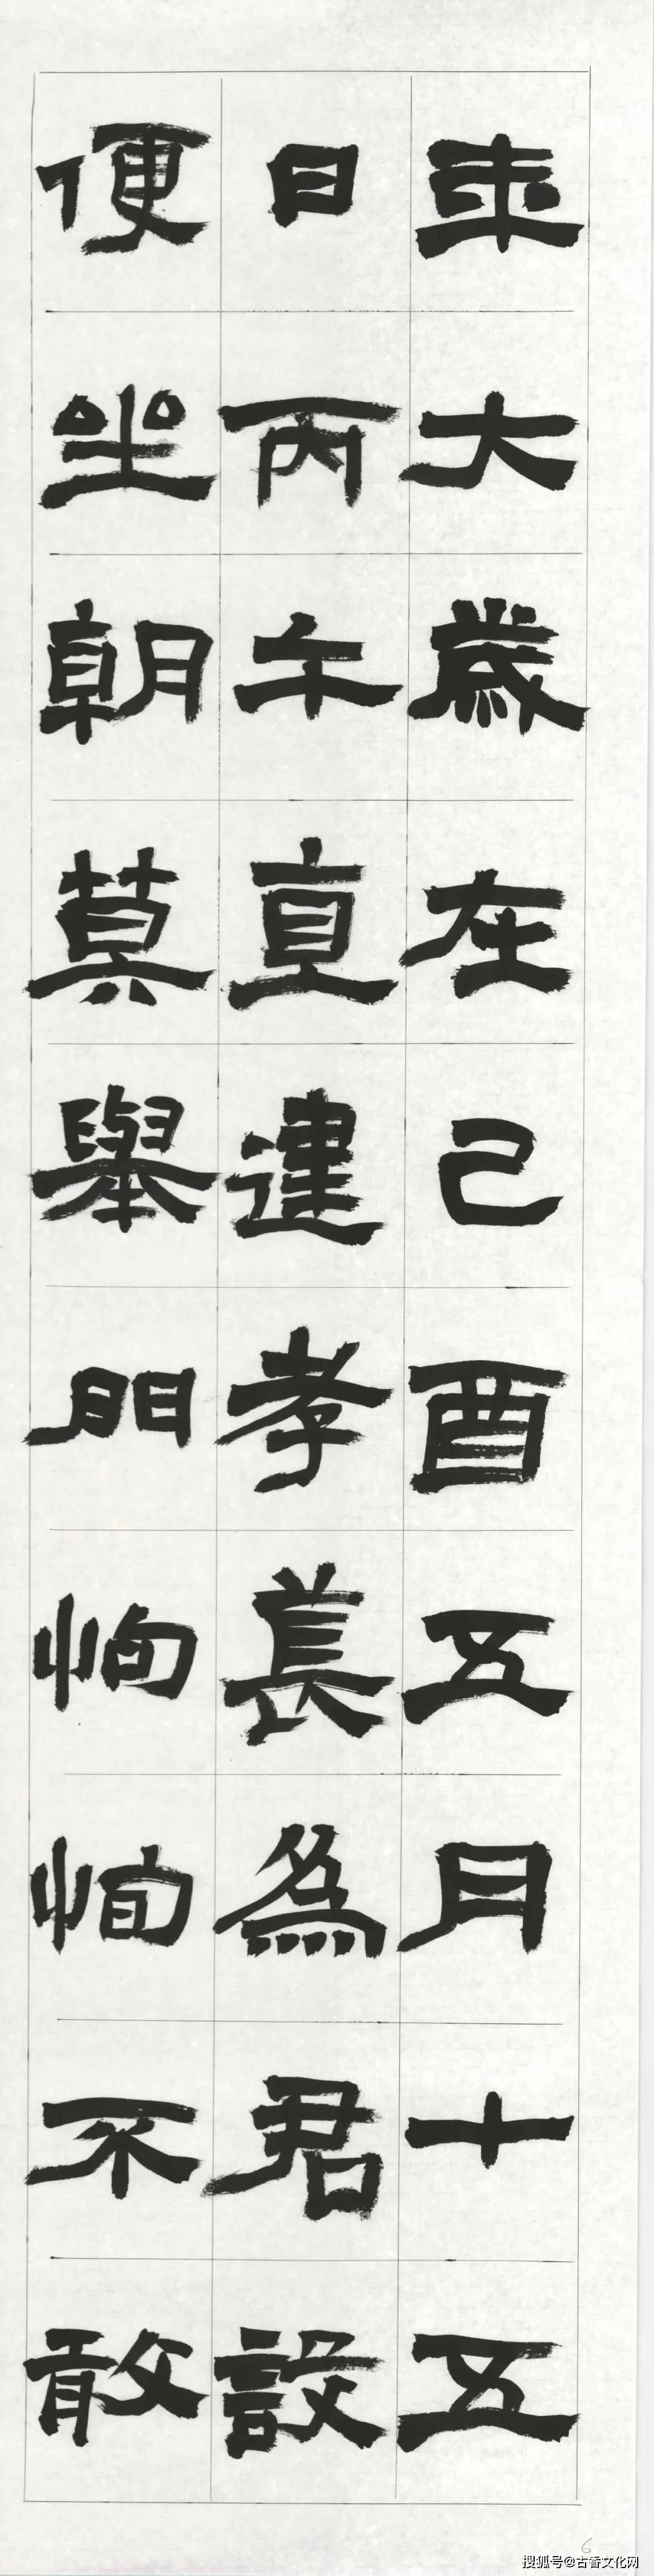 年大歲在己酉五月十五
日丙午直建孝萇為君設
便坐朝莫舉門恂恂不敢
6
搜狐号@古香文化网